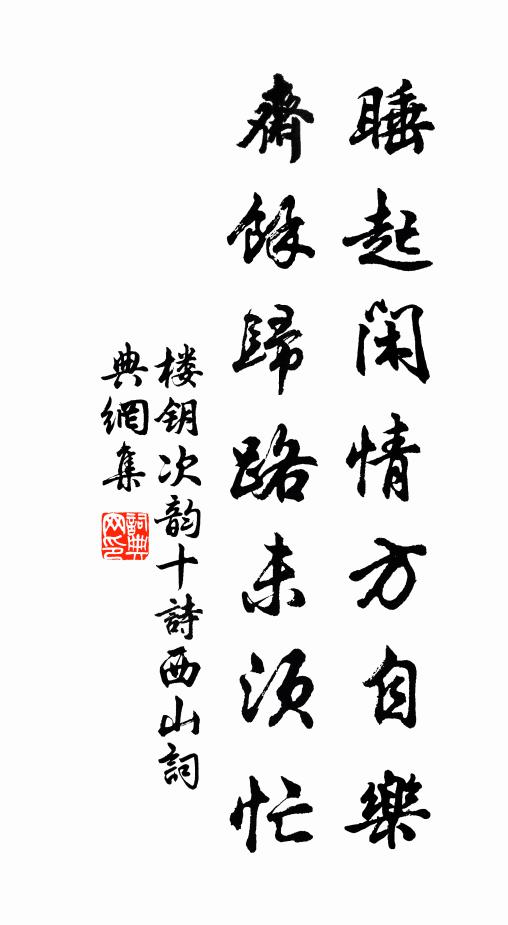 睡起闲情方自樂
齋餘歸路未須忙
楼钥次韵十詩西山詞
典網集
詞典
網印